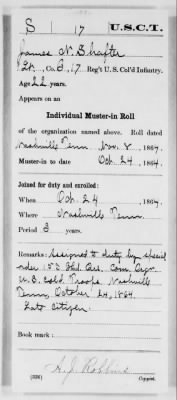 S 17 U.S.C.T.
James N. Shafter
Lt., Co. B, 17 Reg't U. S. Col'd Infantry.
Age 22 years.
Appears on an
Individual Muster-in Roll
of the organization named above. Roll dated
Nashville Tenn, Nov. 8, 1864.
Muster-in to date Oct. 24, 1864.
Joined for duty and enrolled:
When Oct. 24, 1864.
Where Nashville Tenn.
Period 3 years.
Remarks: Assigned to duty by special
order 153 Com. Orgn.
U.S. Cold. Troops, Nashville
Tenn, October 24, 1864.
Late Citizen.
Book mark:
A. J. Robbins
(336) Copyist.